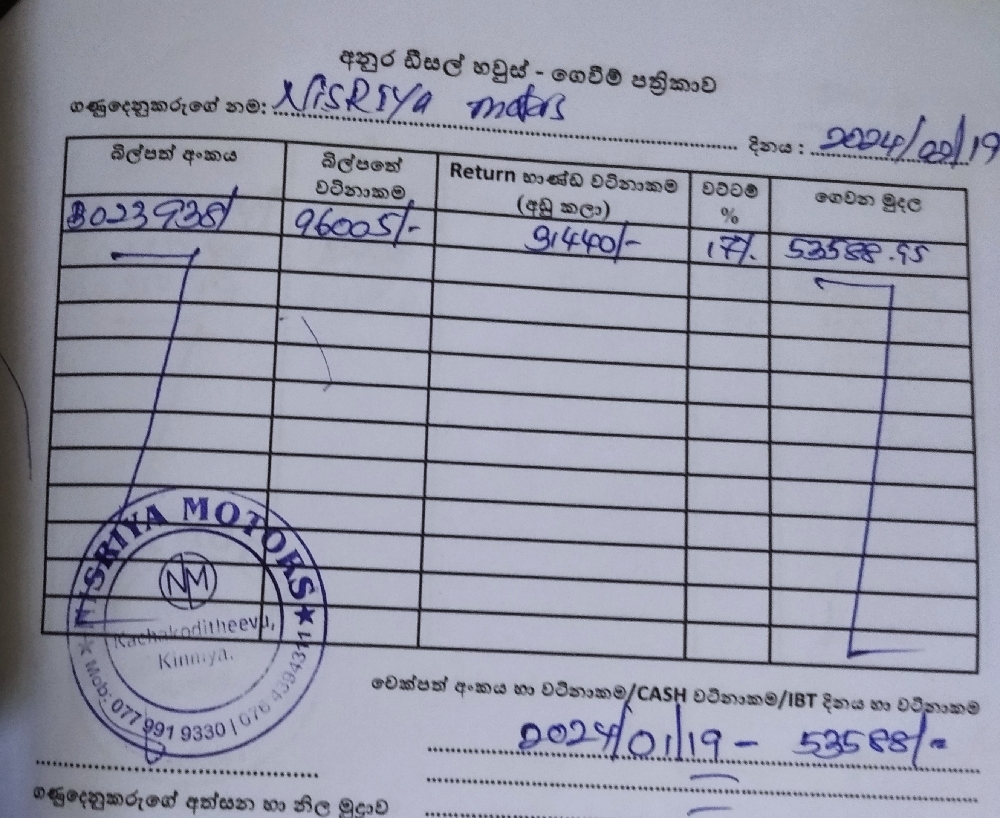 අනුර ඩීසල් හවුස් - ගෙවීම් පත්‍රිකාව
ගණුදෙනුකරුගේ නම: NiSRIYa motors
දිනය : 2024/02/19
බිල්පත් අංකය බිල්පතේ වටිනාකම Return භාණ්ඩ වටිනාකම (අඩු කලා) වට්ටම් % ගෙවන මුදල
B023938/ 96005/- 91440/- 17%. 53588.95
NISRIYA MOTORS
NM
Kachakoditheevu,
Kinniya.
Mob: 077 991 9330 | 076 4394311
චෙක්පත් අංකය හා වටිනාකම/CASH වටිනාකම/IBT දිනය හා වටිනාකම
2024/01/19 - 53588/-
ගණුදෙනුකරුගේ අත්සන හා නිල මුද්‍රාව